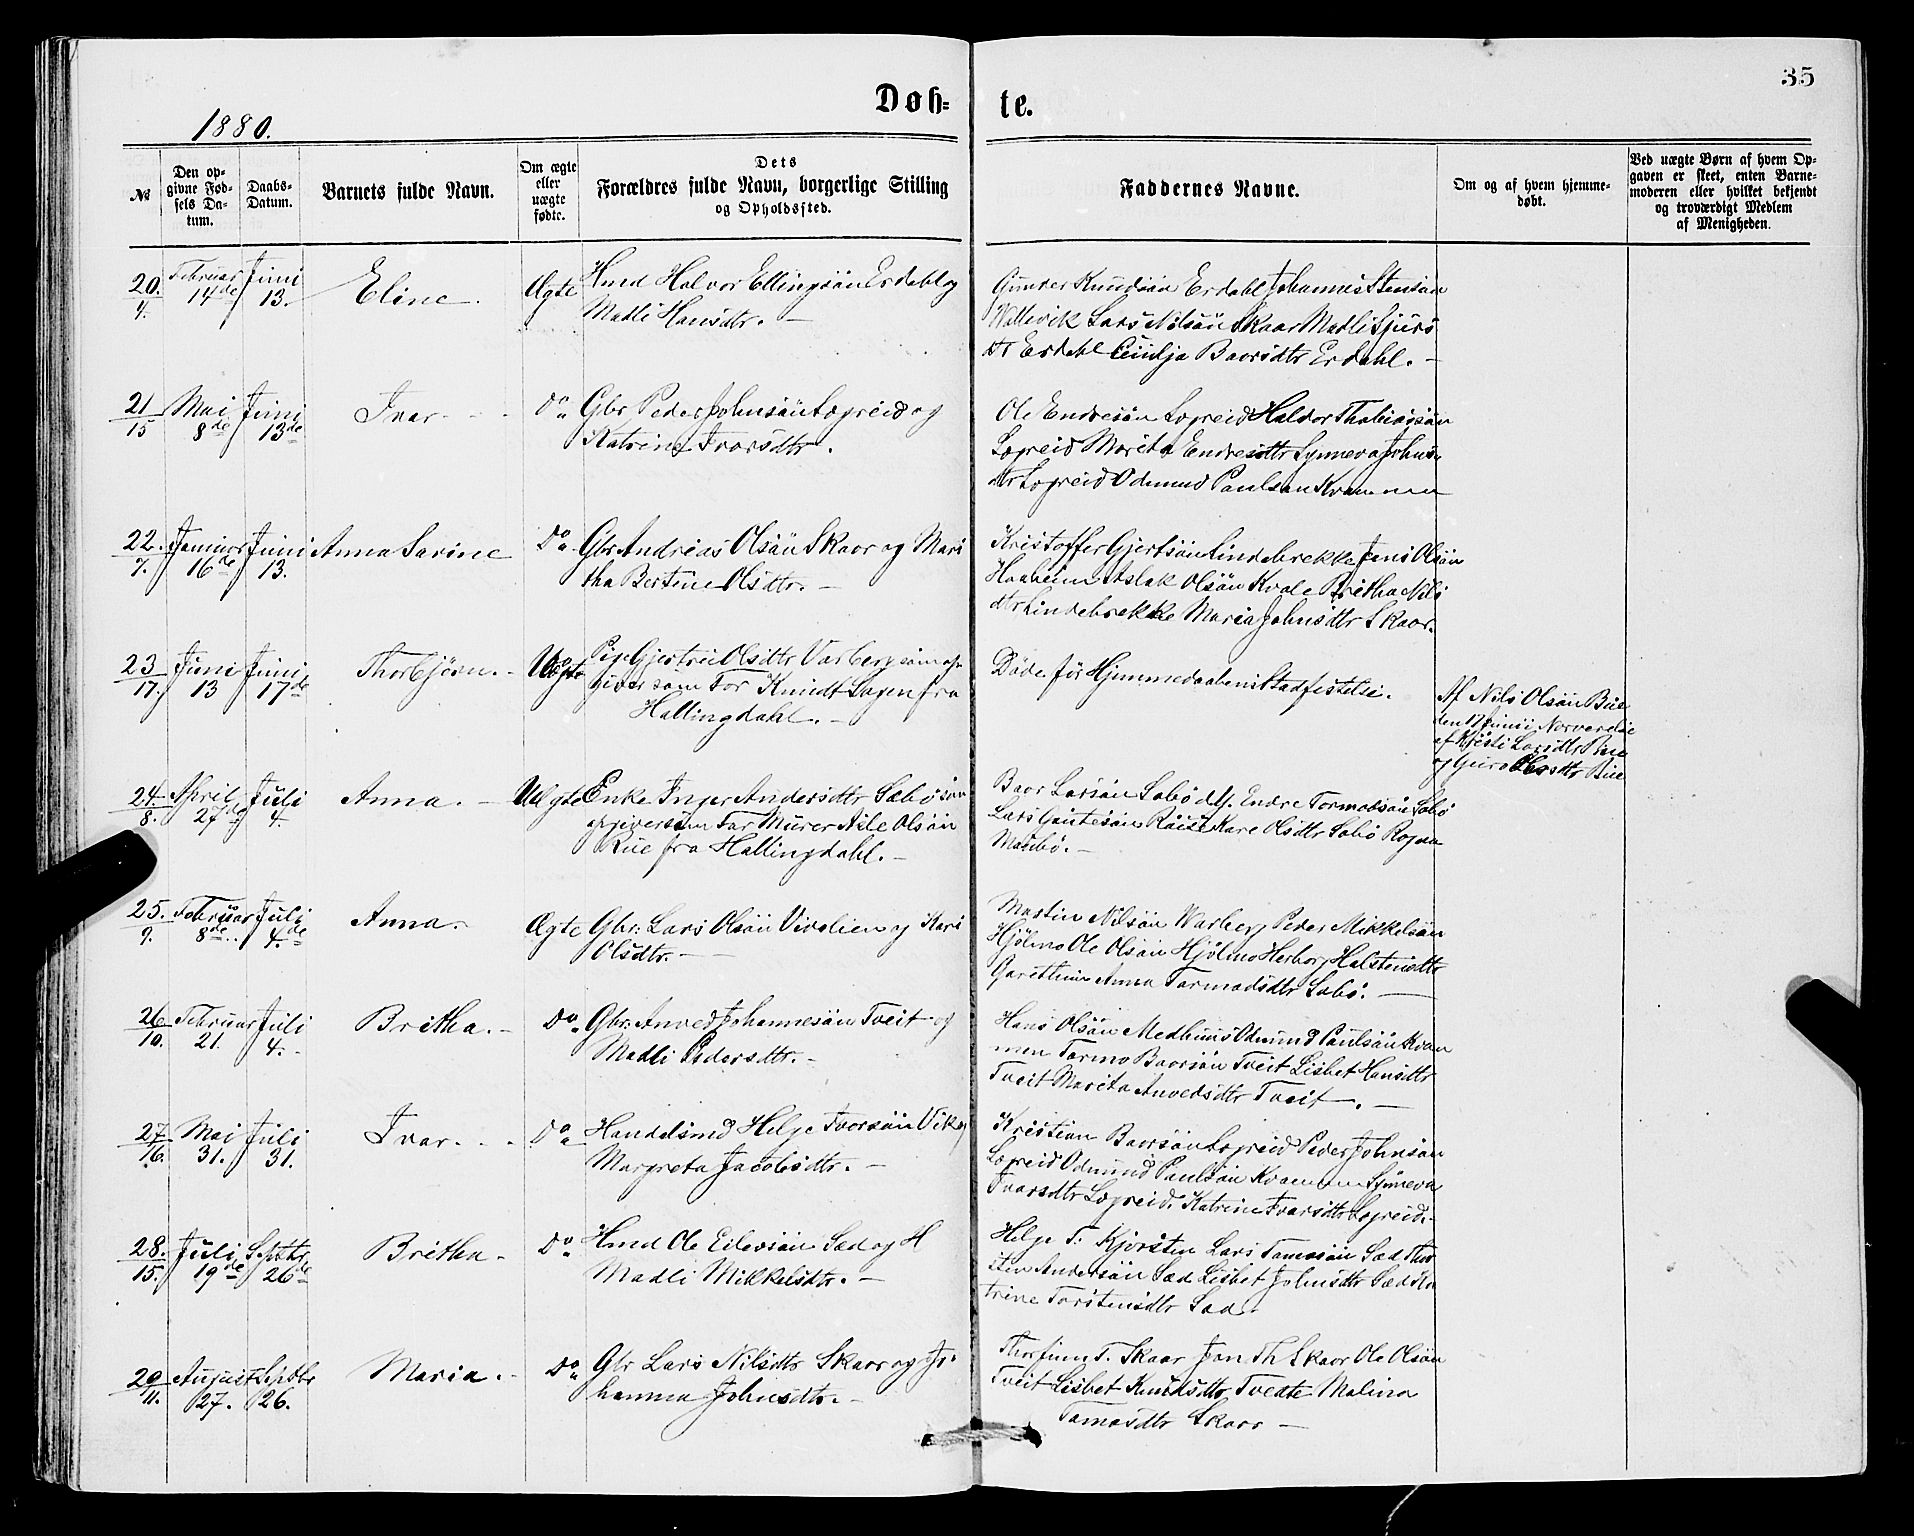 35
Døb=
te.
1880.
№
Den op-
givne Fød-
sels Da-
tum.
Daabs-
Datum.
Barnets fulde Navn.
Om ægte
eller
uægte
fødte.
Dets
Forældres fulde Navn, borgerlige Stilling
og Opholdssted.
Faddernes Navne.
Om og af hvem hjemme-
døbt.
Ved uægte Børn af hvem Op-
gaven er skeet, enten Barne-
moderen eller hvilket bekjendt
og troværdigt Medlem
af Menigheden.
20.
4.
Februar
14de
Juni
13.
Eline.
Ægte
Hmd Halvor Ellingsön Erdahl og
Madli Hansdtr. —
Gunder Knudsön Erdahl Johannes Stensön
Wallevik Lars Nilsön Skaar Madli Sjurs
dtr Erdahl Baorsdtr Erdahl. —
21
15
Mai
8de
Juni
13de
Ivar
Do
Gbr Peder Johnsön Lægreid og
Katrine Ivarsdtr.
Ole Endresön Lægreid Haldor Thobiassön
Lægreid Marita Endresdtr Synneva Johns
dtr Lægreid Odmund Paulsen Kvammen
22.
7.
Januar
16de
Juni
13.
Anna Sarine
Do
Gbr Andreas Olsön Skaar og Mari
tha Bertine Olsdtr. —
Kristoffer Gjertsön Lindebrekke Jens Olsön
Haaheim Aslak Olsön Kvale Britha Nils
dtr Lindebrekke Maria Johnsdtr Skaar.
23
17.
Juni
13
Juni
17de
Thorbjörn. —
Uægte
Pige Gjertrü Olsdtr Varberg som op
giver som Far Knudt Lagen fra
Hallingdahl. —
Döde för Hjemmedaabens Stadfæstelse.
Af Nils Olsön Bue
den 17 Juni Nærværelse
af Kristi Larsdtr Bue
og Guro Olsdtr Bue
24.
8.
April
27de
Juli
4.
Anna. —
Uægte
Enke Inger Andersdtr Sæbö som
opgiver som Far Murer Nile Olsön
Rue fra Hallingdahl. —
Baor Larsön Sæbö Endre Tormodsön Sæbö
Lars Gautesön Kare Olsdtr Sæbö Rogna
Maubö. —
25.
9.
Februar
8de
Juli
4de
Anna.
Ægte
Gbr: Lars Olsön Vivelien og Kari
Olsdtr. —
Martin Nilsön Warberg Peder Mikkelsön
Hjölmo Ole Olsön Hjölmo Herborg Halstensdtr
Garethun Anna Tormodsdtr Sæbö. —
26
10.
Februar
21.
Juli
4.
Britha. —
Do
Gbr. Anved Johannesön Tveit og
Madli Pedersdtr. —
Hans Olsön Medhuus Odmund Paulsön Kvam
men Tormo Baorsön Tveit Lisbet Hansdtr
Tveit Marita Anvedsdtr Tveit. —
27
16.
Mai
31.
Juli
31.
Ivar.
Do
Handelsmd Helge Ivarsön Vik og
Margreta Jacobsdtr. —
Kristian Baorsön Lægreid Peder Johnsön
Lægreid Odmund Paulsön Kvammen Synneva
Ivarsdtr Lægreid. Katrine Ivarsdtr Lægreid. —
28.
15.
Juli
19de
Septbr
26de
Britha.
Do
Hmd Ole Eilevsön Sæd og H
Madli Mikkelsdtr. —
Helge T. Kjersten Lars Tomassön Sæd Thor
sten Andersön Sæd Lisbet Johnsdtr Sæd Ka
trine Torstensdtr Sæd.
29
11.
August
27.
Septbr
26.
Maria. —
Do
Gbr Lars Nilsdtr Skaar og Jo
hanna Johnsdtr. —
Thorfinn T. Skaar Jon Th Skaar Ole Olsön
Tveit Lisbet Knudsdtr Tvedte Malina
Tomasdtr Skaar —